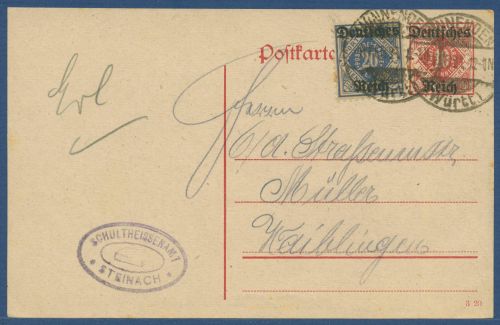 Postkarte
Deutsches
20
Reich
Deutsches
10
Reich
WINNENDEN
(Württ.)
Erl
Herrn
Müller
Waiblingen
SCHULTHEISSENAMT
* STEINACH *
3 20